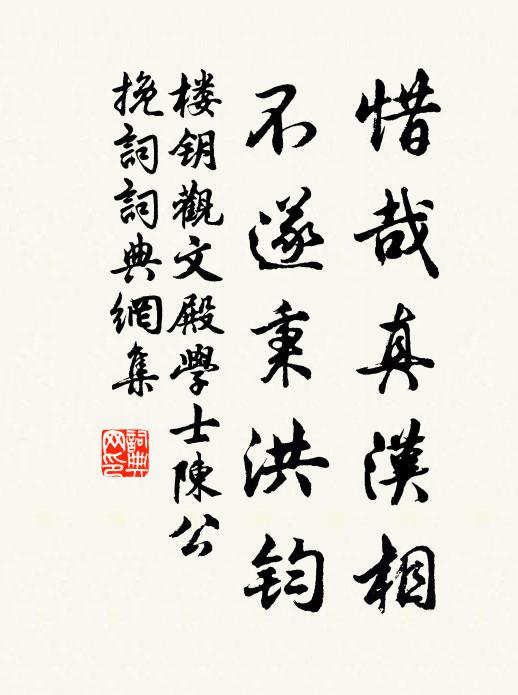 惜哉真漢相
不遂秉洪钧
楼钥觀文殿學士陳公
挽詞詞典網集
詞典网印